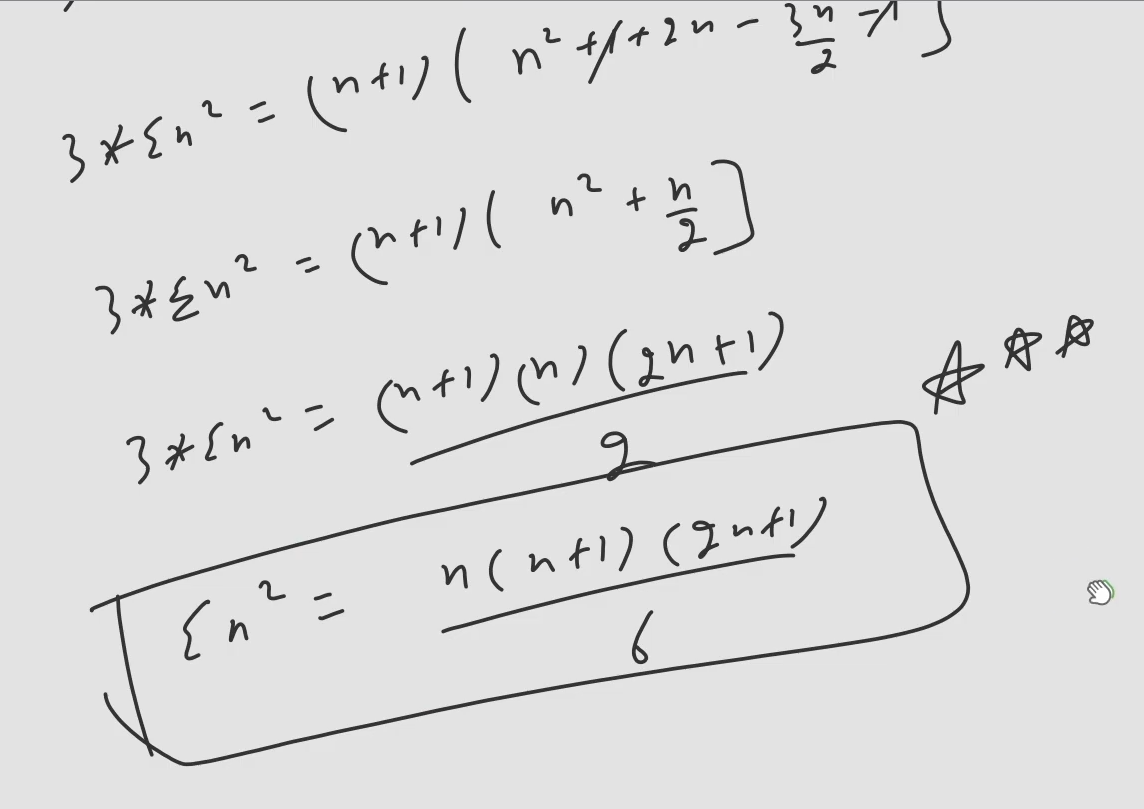 3*Σn² = (n+1) ( n² + 1 + 2n - 3n/2 - 1 ]
3*Σn² = (n+1) ( n² + n/2 ]
3*Σn² = (n+1) (n) (2n+1) / 2
Σn² = n(n+1) (2n+1) / 6